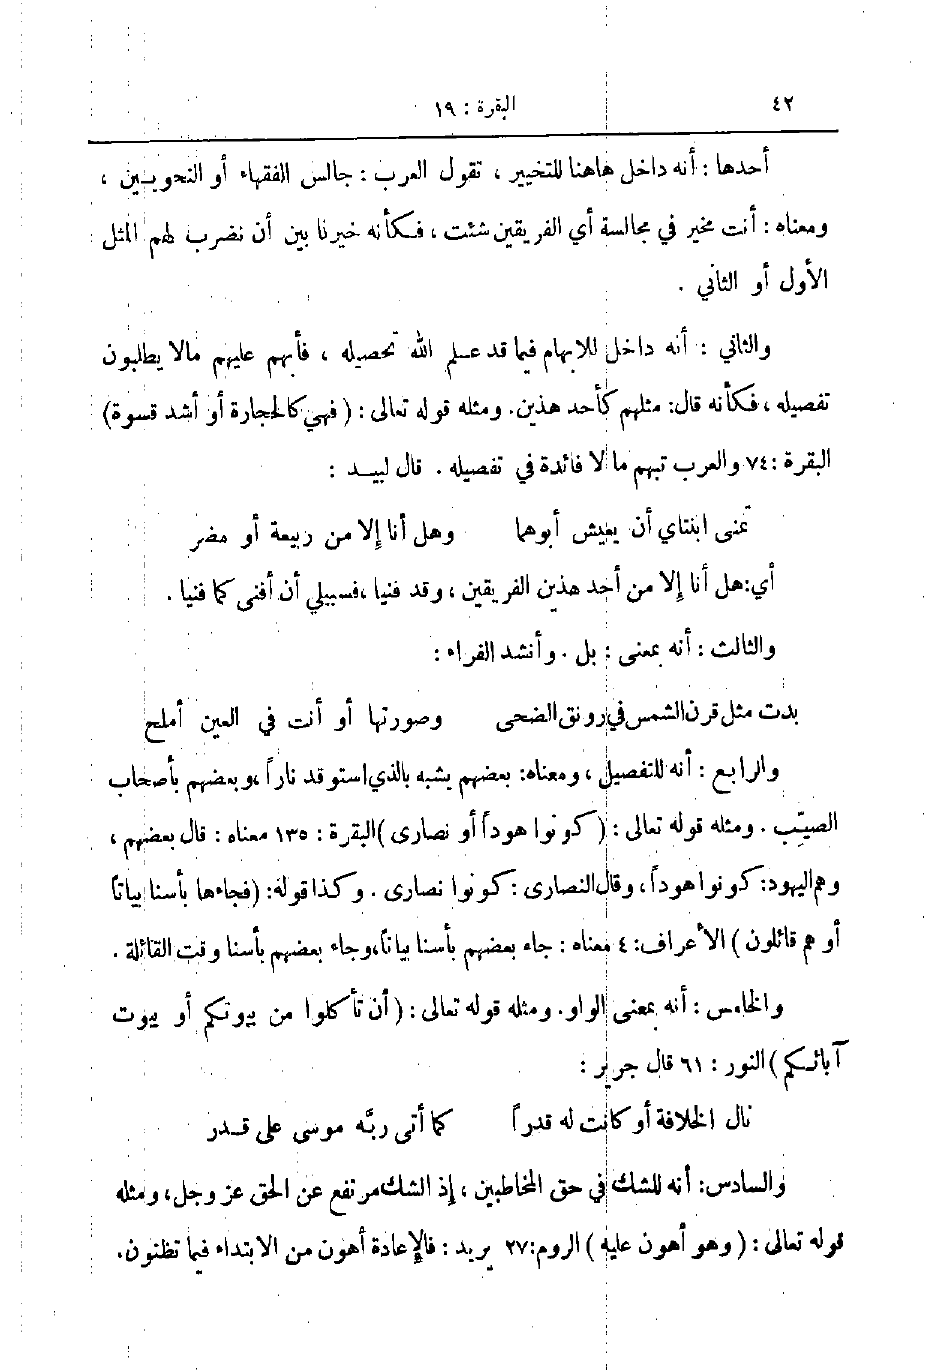 ٤٢ البقرة : ١٩
أحدها : أنه داخل هاهنا للتخيير ، تقول العرب : جالس الفقهاء أو النحويـين ،
ومعناه : أنت مخير في مجالسة أي الفريقين شئت ، فكأنه خيرنا بين أن نضرب لهم المثل
الأول أو الثاني .
والثاني : أنه داخل للابهام فيما قد علم الله تحصيله ، فأبهم عليهم مالا يطلبون
تفصيله ، فكأنه قال: مثلهم كأحد هذين. ومثله قوله تعالى : ( فهي كالحجارة أو أشد قسوة)
البقرة : ٧٤ والعرب تبهم ما لا فائدة في تفصيله . قال لبيـد :
تمنى ابنتاي أن يعيش أبوهما وهل أنا إلا من ربيعة أو مضر
أي:هل أنا إلا من أحد هذين الفريقين ، وقد فنيا ،فسبيلي أن أفنى كما فنيا .
والثالث : أنه بمعنى : بل . وأنشد الفراء :
بدت مثل قرن الشمس في رونق الضحى وصورتها أو أنت في العين أملح
والرابع : أنه للتفصيل ، ومعناه: بعضهم يشبه بالذي استوقد ناراً ،وبعضهم بأصحاب
الصيّب . ومثله قوله تعالى : ( كونوا هوداً أو نصارى )البقرة : ١٣٥ معناه : قال بعضهم ،
وهم اليهود: كونوا هوداً ، وقال النصارى : كونوا نصارى . وكذا قوله: (فجاءها بأسنا بياتاً
أو هم قائلون ) الأعراف: ٤ معناه : جاء بعضهم بأسنا بياتاً،وجاء بعضهم بأسنا وقت القائلة .
والخامس : أنه بمعنى الواو. ومثله قوله تعالى : ( أن تأكلوا من بيوتكم أو بيوت
آبائـكم ) النور : ٦١ قال جرير :
نال الخلافة أو كانت له قدراً كما أتى ربَّه موسى على قـدر
والسادس: أنه للشك في حق المخاطبين ، إذ الشك مرتفع عن الحق عز وجل، ومثله
قوله تعالى : ( وهو أهون عليه ) الروم:٢٧ يريد : فالإعادة أهون من الابتداء فيما تظنون.